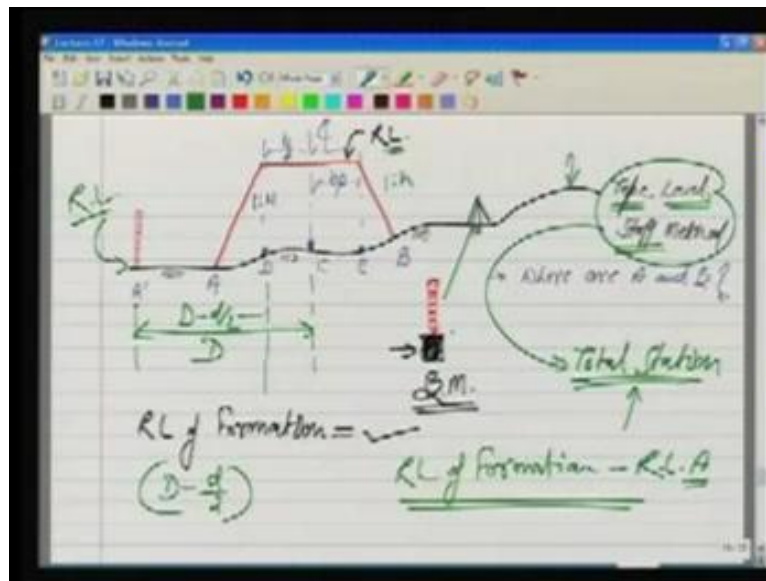 Lecture 37 - Windows Journal
File Edit View Insert Actions Tools Help
R.L.
RL.
1:n
1:n
Tape Level
Staff Method
A'
A
D
C
E
B
→ Where are A and B?
D-d/2
D
B.M.
Total Station
RL of Formation =
(D - d/2)
RL of Formation - R.L.A